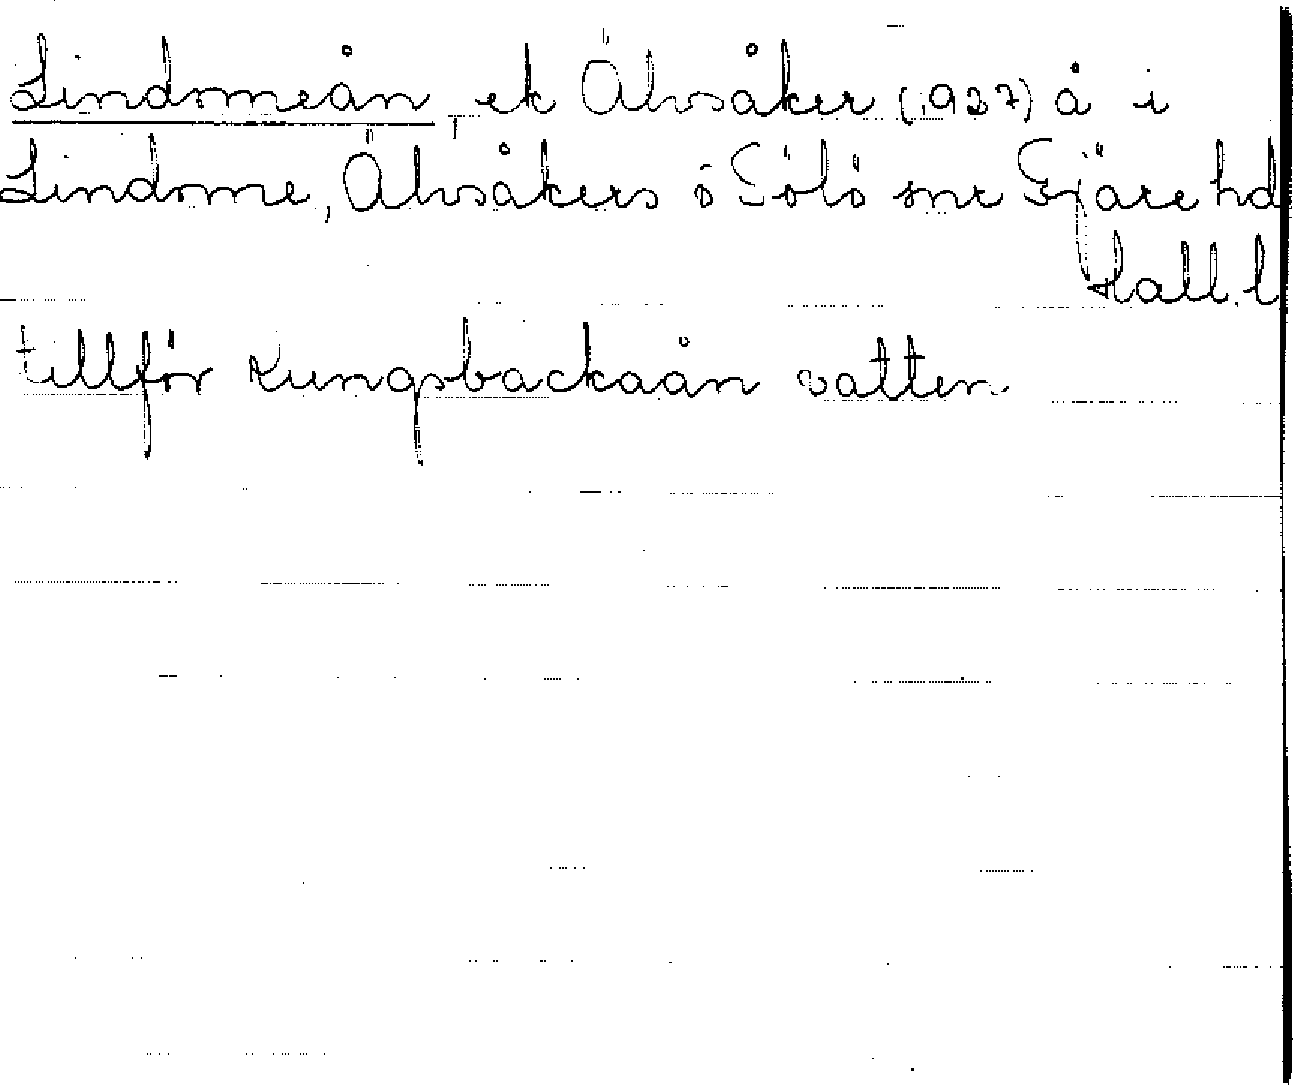 Lindomeån, ek Älvsåker (1927) å i
Lindome, Älvsåkers o Tölö snr Fjäre hd
Hall. l
tillför Kungsbackaån vatten.